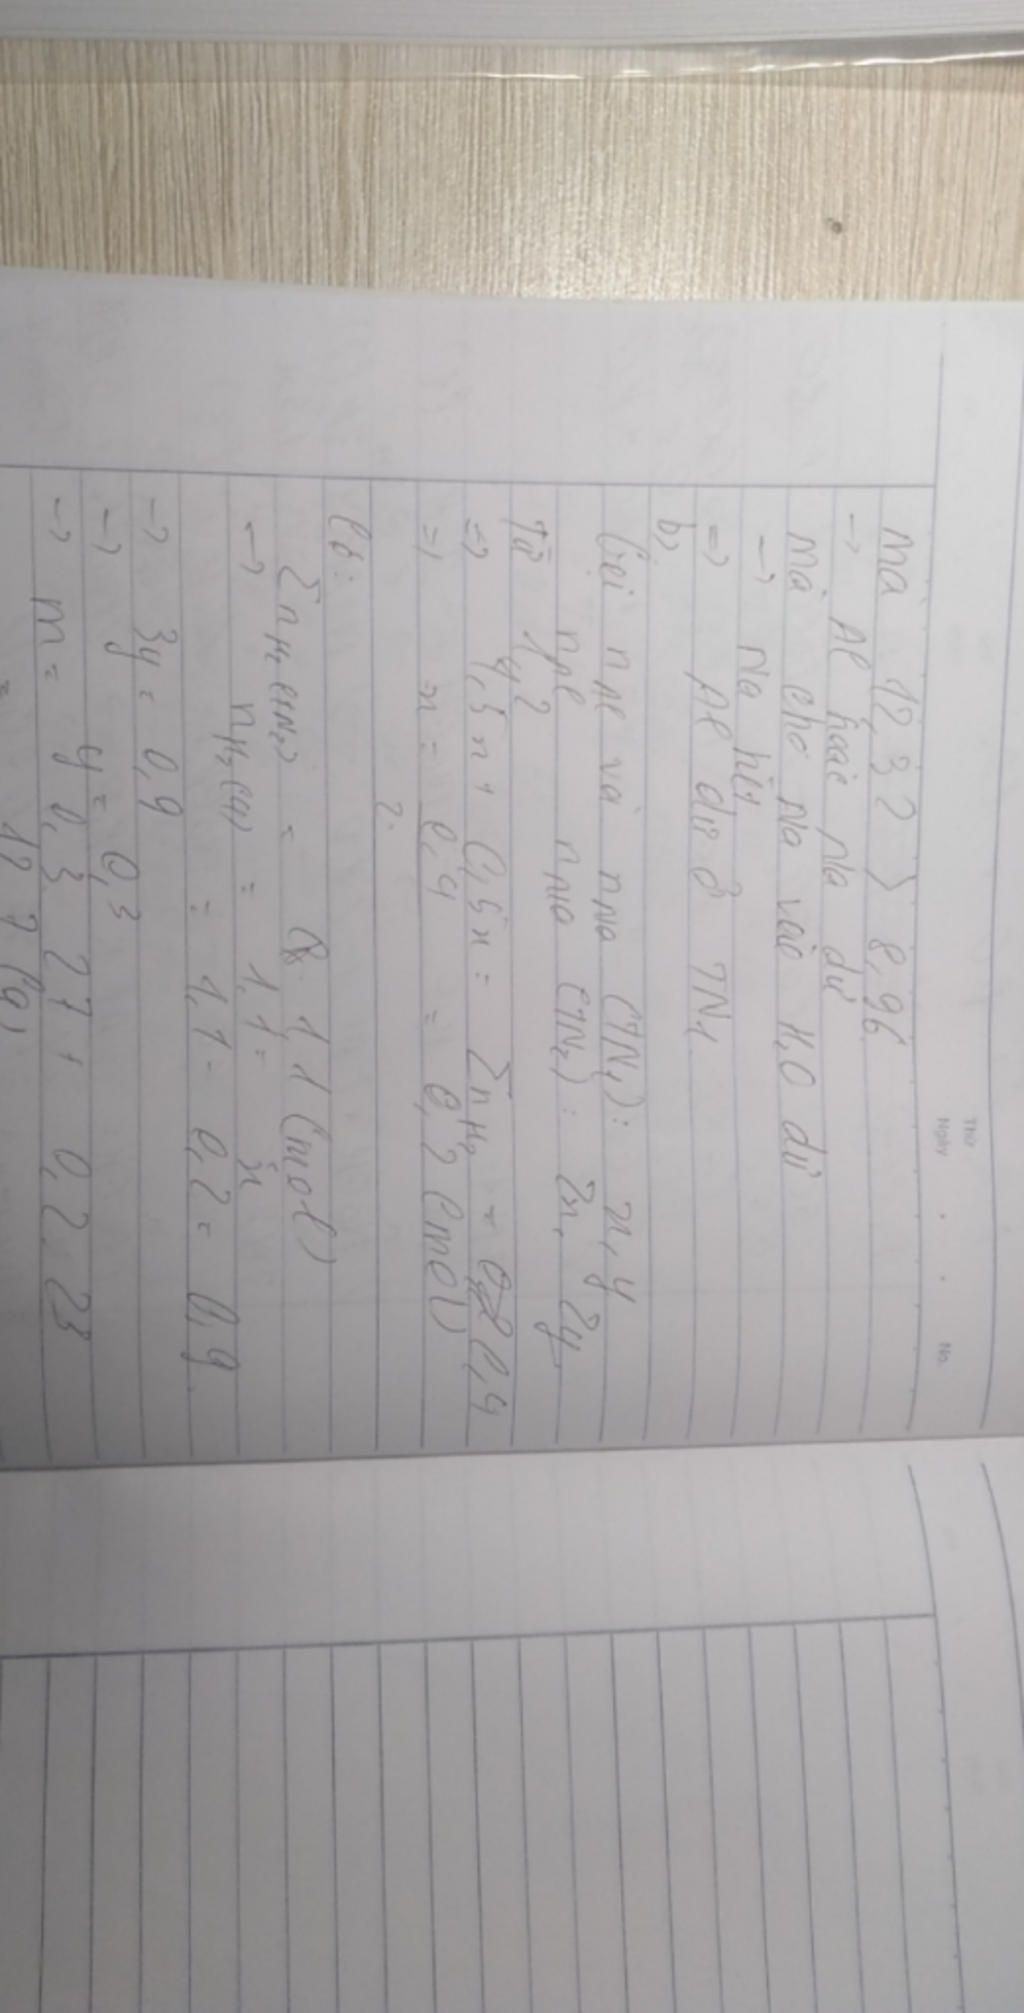 Thứ
Ngày . . No.
Mà 12,32 > 8,96
→ Al hoặc Na dư
mà cho Na vào H2O dư
→ Na hết
=> Al dư ở TN1
b)
Gọi nAl và nNa (TN1): x, y
nAl nNa (TN2): 2x, 2y
Từ 1,2
=> 1,5x + 0,5x = Σn H2 = 0,4
=> x = 0,4 = 0,2 (mol)
2
Có:
Σn H2 (TN2) = 1,1 (mol)
→ n H2 (4) = 1,1 =
= 1,1 - 0,2 = 0,9
→ 3y = 0,9
→ y = 0,3
→ m = 0,3 27 + 0,2 . 23
= 12,7 (g)